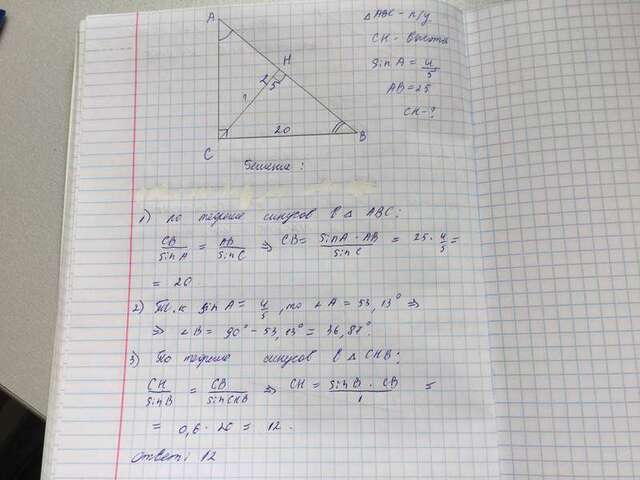 A
△ABC - п/у.
CH - высота
H
sin A = 4/5
25
AB = 25
?
CH - ?
20
C
B
Решение :
1) По теореме синусов в △ ABC:
CB/sin A = AB/sin C ⇒ CB = sin A · AB/sin C = 25 · 4/5 =
= 20
2) Т.к sin A = 4/5, то ∠A = 53,13° ⇒
⇒ ∠B = 90° - 53,13° = 36,87°.
3) По теореме синусов в △ CHB:
CH/sin B = CB/sin CHB ⇒ CH = sin B · CB/1 =
= 0,6 · 20 = 12.
Ответ: 12